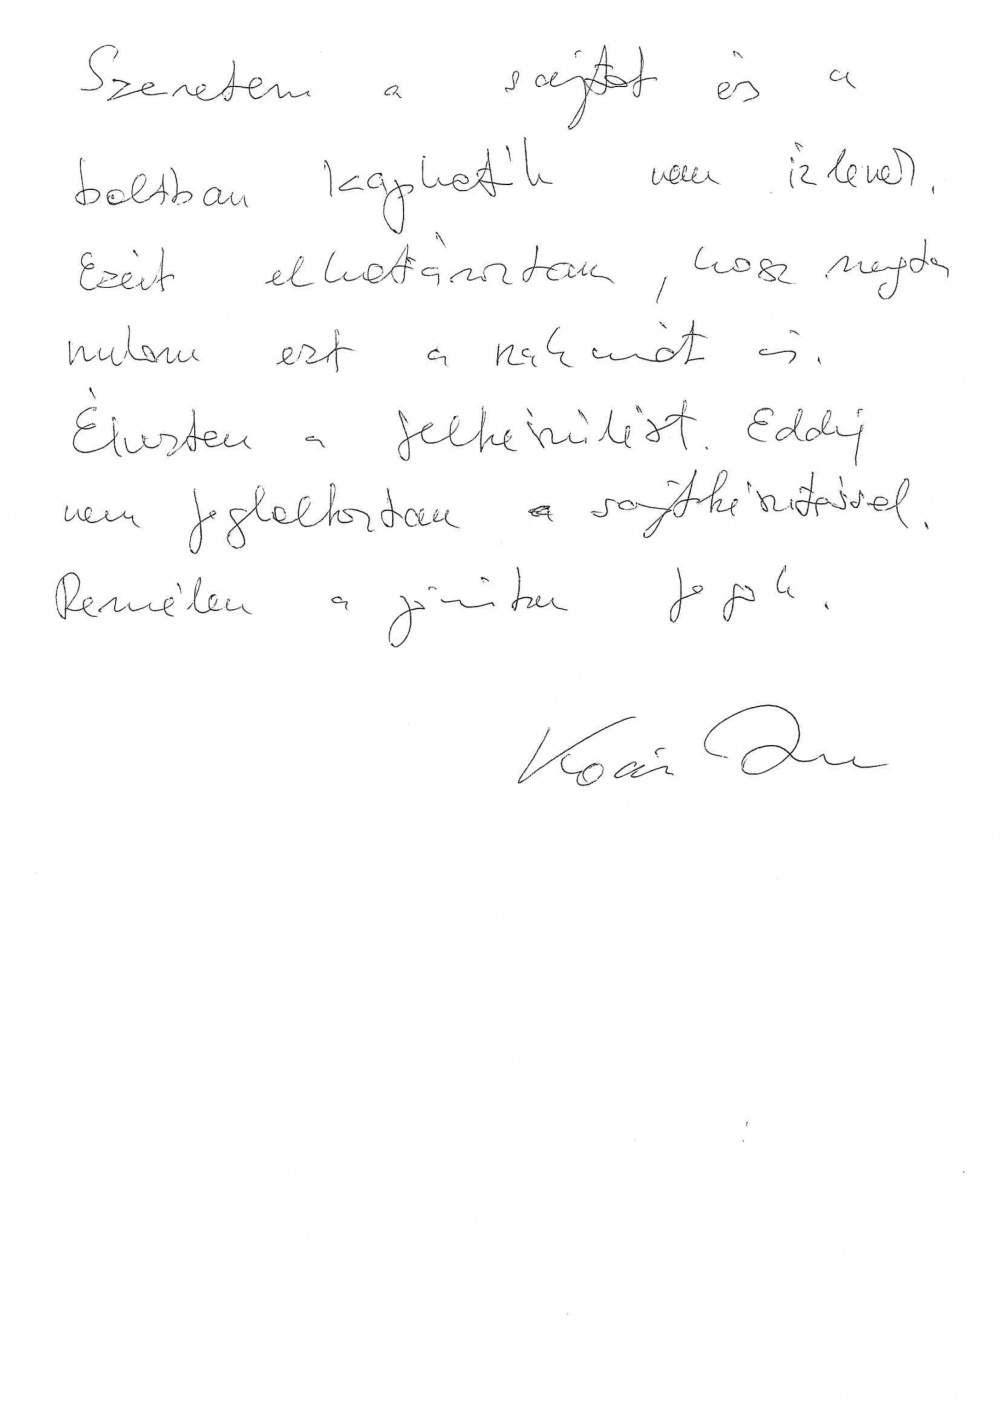 Szeretem a sajtot és a
boltban kaphatók nem ízlenek.
Ezért elhatároztam, hogy megta
nulom ezt a szakmát is.
Élveztem a felkészülést. Eddig
nem foglalkoztam a sajtkészítéssel.
Remélem a jövőben fogok.